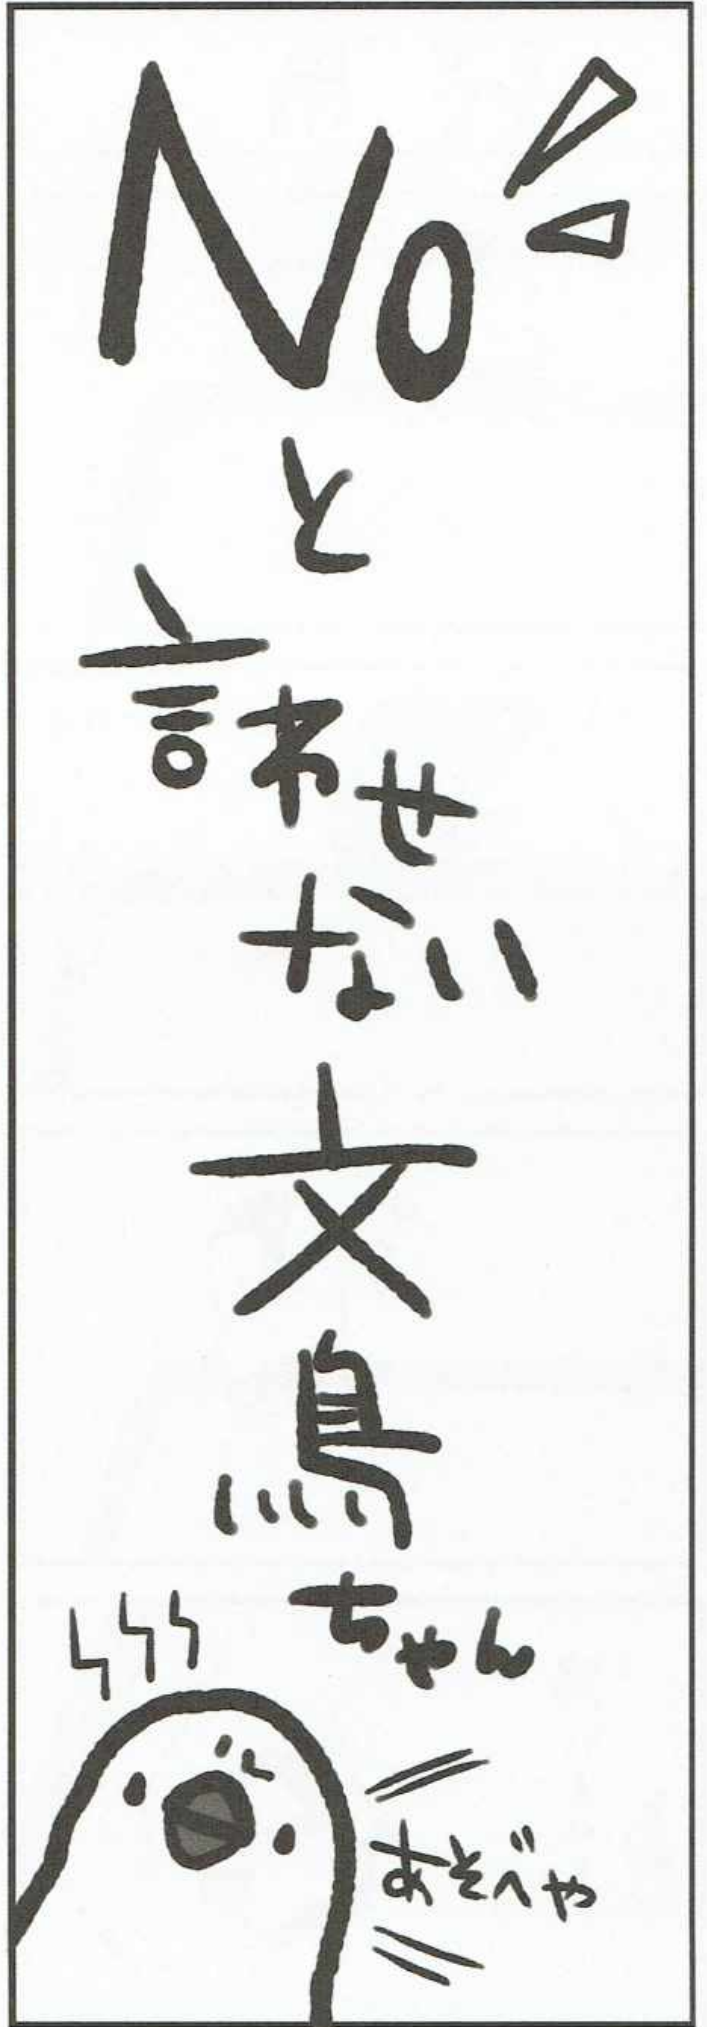 No
と
言わせ
ない
文
鳥
ちゃん
あそべや